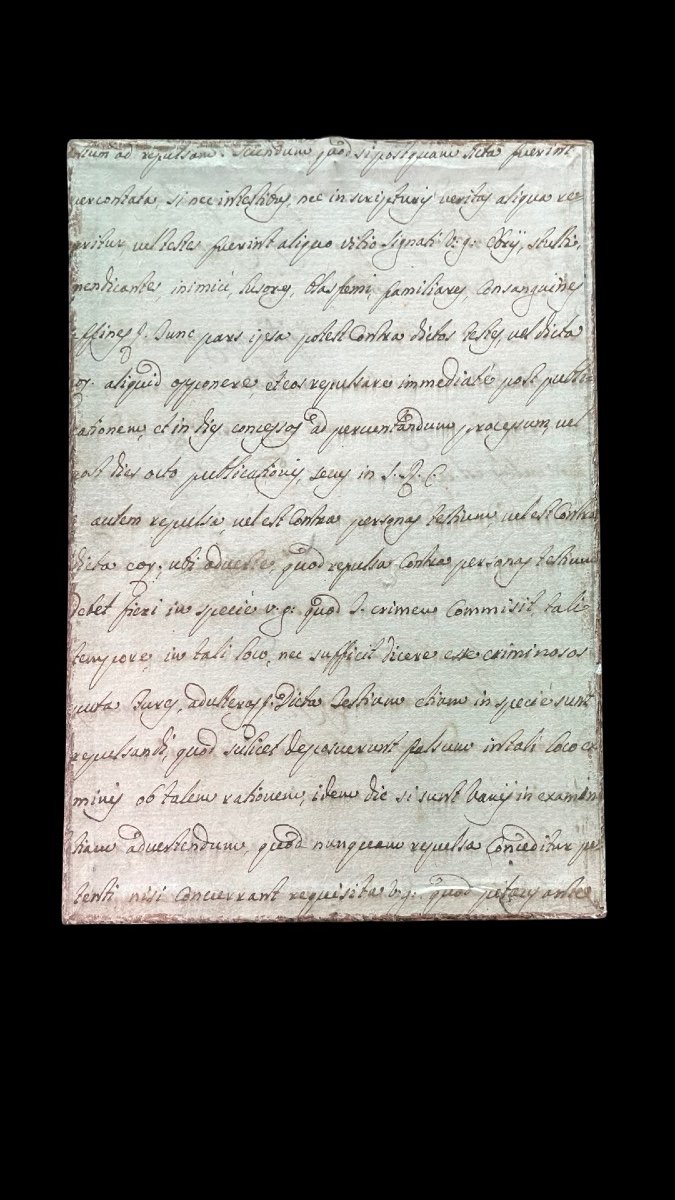 ntum ad repulsam. Sciendum quod si postquam dicta fuerint
percontata, si nec in testibus, nec in scripturis veritas aliqua re
peritur vel testes fuerint aliquo vitio signati v: g: Ebrij, stulti,
mendicantes, inimici, lusores, blasfemi, familiares, Consanguinei
affines
Tunc pars ipsa potest Contra dictos testes, vel dicta
eor. aliquid opponere, et eos repulsare immediate post publi
cationem, et in dies concessos ad percontandum processum, vel
post dies octo publicationis, secus in S. R. C.
autem repulsa, vel est Contra personas testium, vel est Contra
dicta eor. ubi adverte, quod repulsa Contra personas testium
debet fieri in specie v. g: quod crimen Commisit tali
tempore, in tali loco, nec sufficit dicere esse criminosos
puta fures, adulteros Dicta Testium etiam in specie sunt
repulsandi, quod scilicet deposuerunt falsum in tali loco
minis ob talem rationem, idem dic si sunt Varij in examin
tiam advertendum, quod nunquam repulsa Conceditur pe
tenti nisi Concurrant requisita v. g: quod petens ante